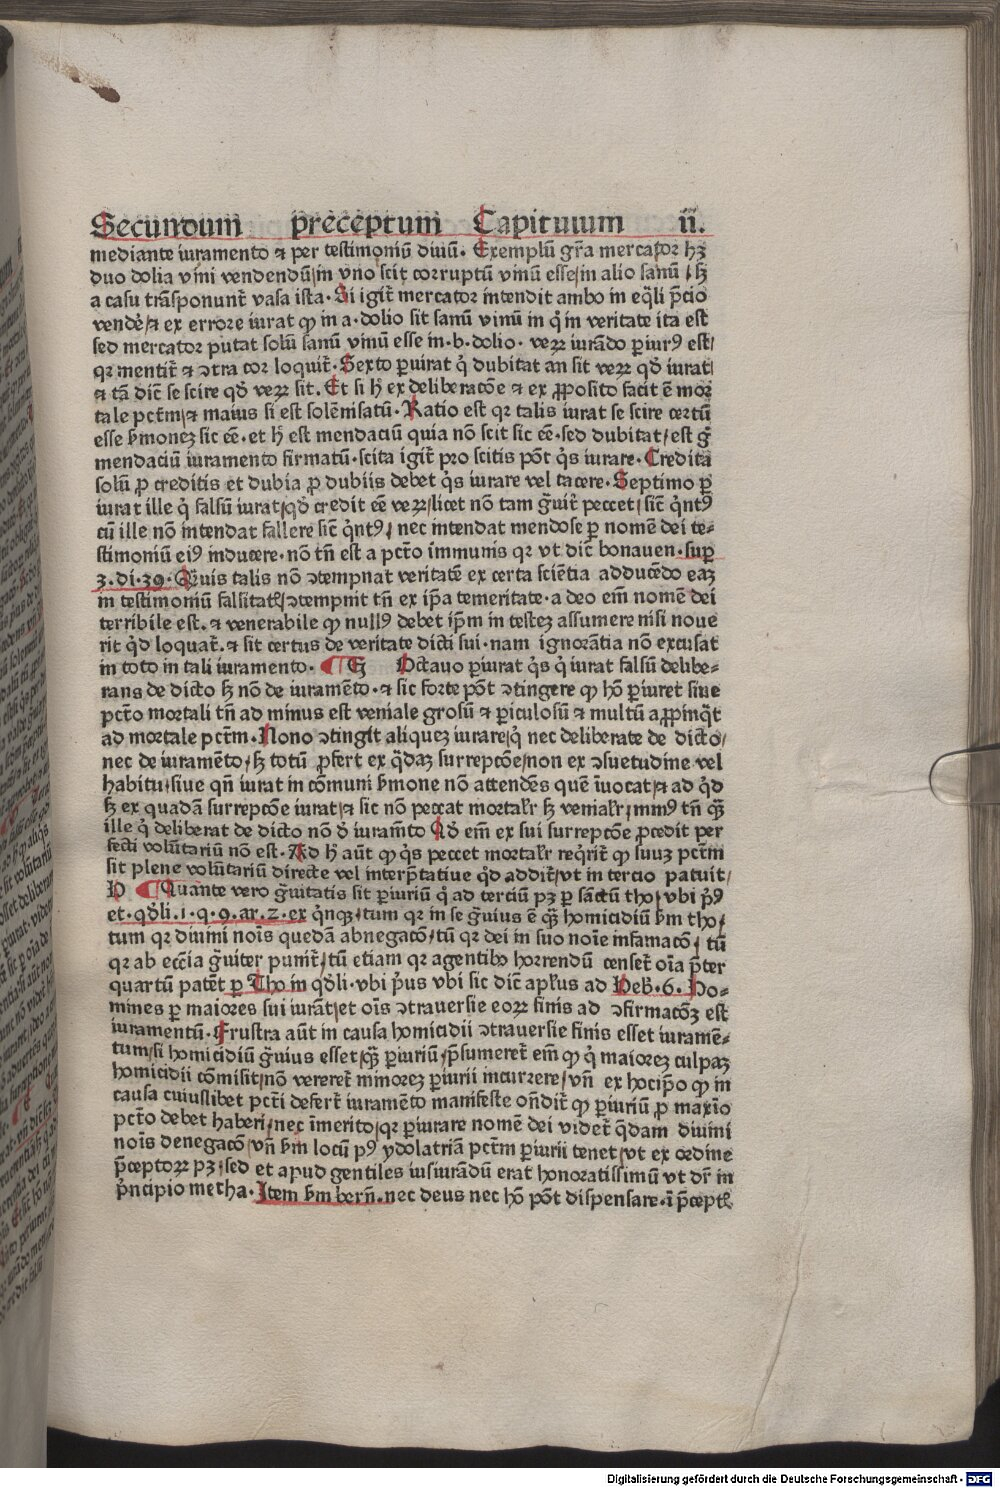 Secundum preceptum Capitulum ii.
mediante iuramento ⁊ per testimoniū diuiū. Exemplū gr̄a mercator hꝫ
duo dolia vini vendendū/in vno scit corruptū vinū esse/in alio sanū/sꝫ
a casu trāsponunt᷑ vasa ista. Si igit᷑ mercator intendit ambo in eq̄li p̄cio
vendē/⁊ ex errore iurat ꝙ in a. dolio sit sanū vinū in q̊ in veritate ita est
sed mercator putat solū sanū vinū esse in .b. dolio. veꝝ iurādo ꝑiurꝰ est/
qꝛ mentit᷑ ⁊ ꝯtra cor loquit᷑. Sexto ꝑiurat q̇ dubitat an sit veꝝ qd̄ iurat/
⁊ tā dic̄ se scire qd̄ veꝝ sit. Et si h̄ ex deliberacōe ⁊ ex ꝓposito facit ē mor
tale pctm̄/⁊ maius si est solēnisatū. Ratio est qꝛ talis iurat se scire certū
esse ẜmonez sic ēē. et h̄ est mendaciū quia nō scit sic ēē. sed dubitat/est g̊
mendaciū iuramento firmatū. scita igit᷑ pro scitis pōt q̇s iurare. Credita
solū ꝓ creditis et dubia ꝓ dubiis debet q̇s iurare vel tacere. Septimo ꝑ
iurat ille q̇ falsū iurat/qd̄ credit ēē veꝝ/licet nō tam g̃uit᷑ peccet/sic̄ q̇ntꝰ
cū ille nō intendat fallere sic̄ q̇ntꝰ/ nec intendat mendose ꝑ nomē dei te-
stimoniū eiꝰ inducere. nō tn̄ est a pctō immunis qꝛ vt dic̄ bonauen. suꝑ
3. di. 39. Quis talis nō ꝯtempnat veritatē ex certa sciētia adducēdo eaꝫ
in testimoniū falsitatꝭ/ꝯtempnit tn̄ ex ip̄a temeritate. a deo em̄ nomē dei
terribile est. ⁊ venerabile ꝙ nullꝰ debet ip̄m in testez assumere nisi noue
rit qd̄ loquat᷑. ⁊ sit certus de veritate dicti sui. nam ignorātia nō excusat
in toto in tali iuramento. ¶ G Octauo ꝑiurat q̇s q̇ iurat falsū delibe-
rans de dicto sꝫ nō de iuramēto. ⁊ sic forte pōt ꝯtingere ꝙ hō ꝑiuret siue
pctō mortali tn̄ ad minus est veniale grosū ⁊ ꝑiculosū ⁊ multū aꝓpinq̄t
ad mortale pctm̄. Nono ꝯtingit aliquez iurare/q̇ nec deliberate de dicto/
nec de iuramēto/sꝫ totū ꝓfert ex q̄daꝫ surrepcōe/non ex ꝯsuetudine vel
habitu/siue qn̄ iurat in cōmuni ẜmone nō attendēs quē īuocat/⁊ ad qd̄
sꝫ ex quadā surrepcōe iurat/⁊ sic nō peccat mortalr̄ sꝫ venialr̄/minꝰ tn̄ qꝫ
ille q̇ deliberat de dicto nō d̄ iuram̄to Qd̄ em̄ ex sui surrepcōe ꝓcedit per
fecti volūtariū nō est. Ad h̄ aūt ꝙ q̇s peccet mortalr̄ req̇rit᷑ ꝙ suuꝫ pctm̄
sit plene volūtariū directe vel interp̄tatiue qd̄ addit᷑/vt in tercio patuit/
H ¶ Quante vero g̃uitatis sit ꝑiuriū q̇ ad terciū pꝫ ꝑ sāctū tho/vbi p̄ꝰ
et. qd̄li. 1. q. 9. ar. 2. ex q̇nqꝫ/tum qꝛ in se g̃uius ē qꝫ homicidiū ẜm tho/
tum qꝛ diuini noīs quedā abnegacō/tū qꝛ dei in suo noīe infamacō/ tū
qꝛ ab ecc̄ia g̃uiter punit᷑/tū etiam qꝛ agentibꝰ horrendū censet᷑ oīa p̄ter
quartū patēt ꝑ Tho in qd̄li. vbi p̄us vbi sic dic̄ apl̄us ad Heb̄. 6. Ho-
mines ꝑ maiores sui iurāt/et oīs ꝯtrauersie eoꝝ finis ad ꝯfirmacōꝫ est
iuramentū. Frustra aūt in causa homicidii ꝯtrauersie finis esset iuramē-
tum/si homicidiū g̃uius esset/qꝫ ꝑiuriū/p̄sumeret᷑ em̄ ꝙ q̇ maiorez culpaꝫ
homicidii cōmisit/nō vereret᷑ minorez ꝑiurii incurrere/vn̄ ex hocip̄o ꝙ in
causa cuiuslibet pcti defert᷑ iuramēto manifeste on̄dit᷑ ꝙ ꝑiuriū ꝓ maxīo
pctō debet haberi/nec īmerito/qꝛ ꝑiurare nomē dei videt᷑ q̄dam diuini
noīs denegacō/vn̄ ẜm locū pꝰ ydolatriā pctm̄ ꝑiurii tenet/vt ex ordine
p̄ceptoꝝ pꝫ/sed et apud gentiles iusiurādū erat honoratissimū vt dr̄ in
p̄ncipio metha. Item ẜm bern̄. nec deus nec hō pōt dispensare. ī p̄ceptꝭ
Digitalisierung gefördert durch die Deutsche Forschungsgemeinschaft - DFG